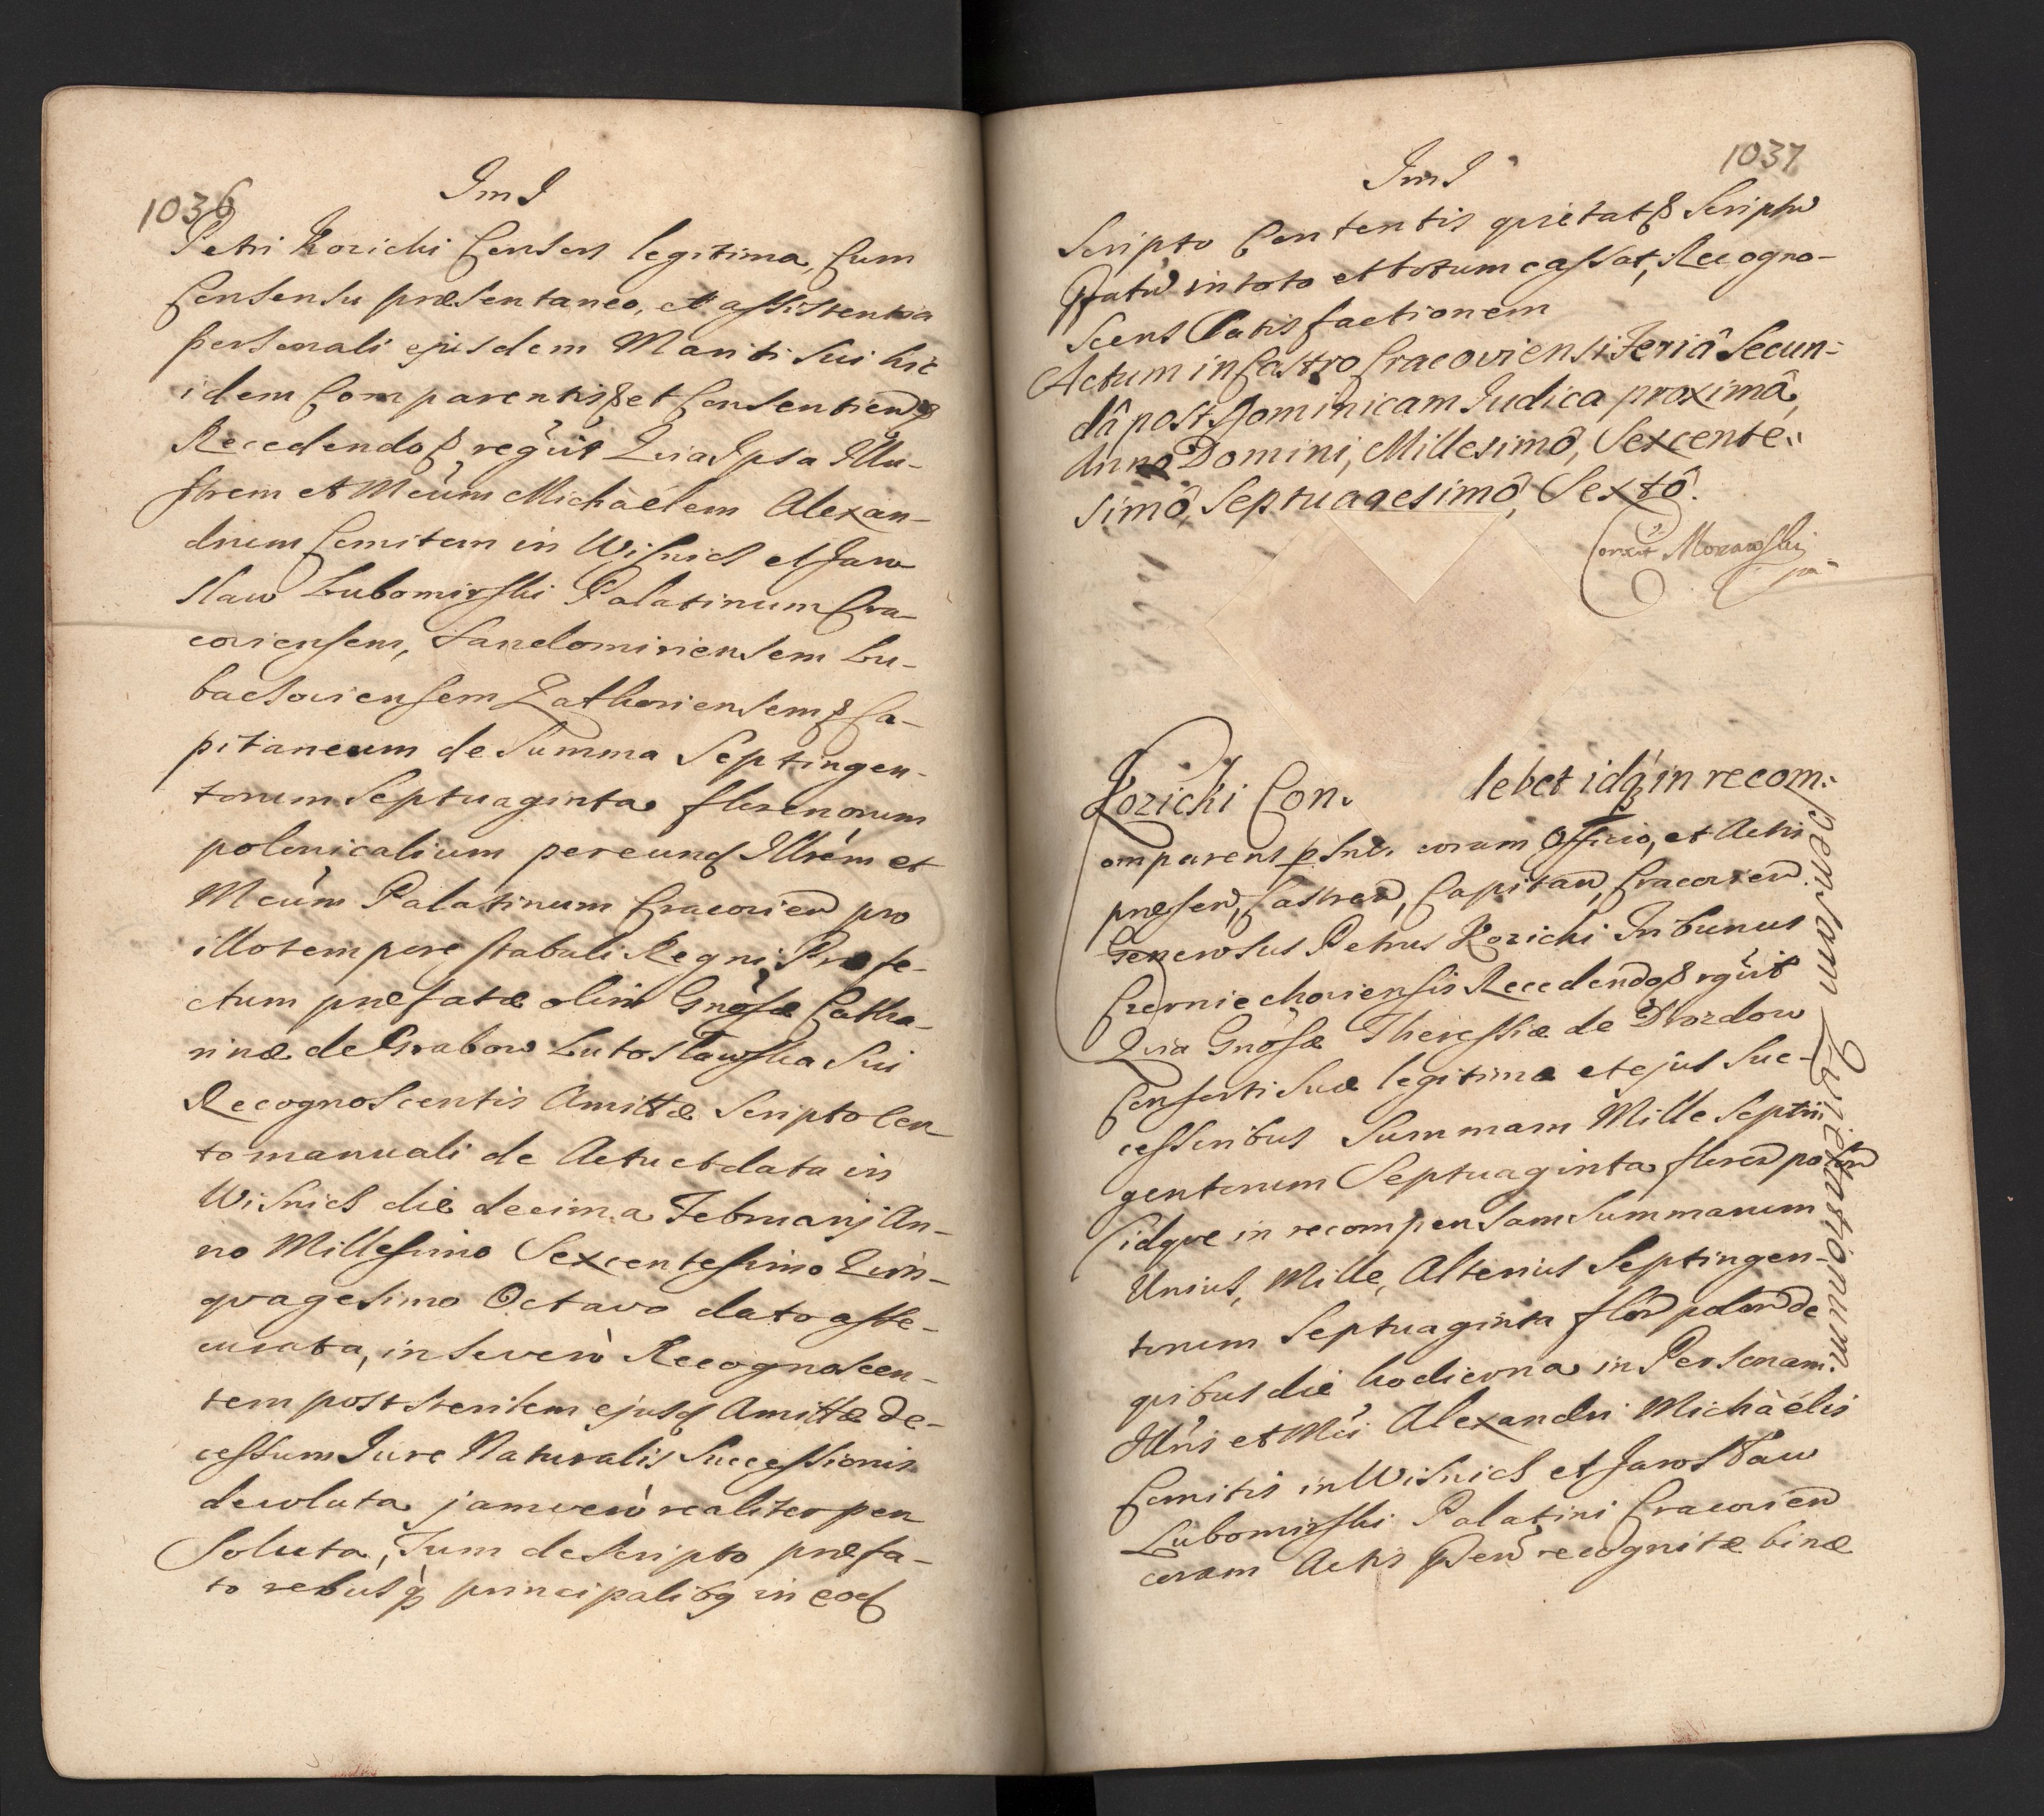 1036
ImI
Petri Kozicki Consors legitima, Cum
Consensu præsentaneo, et assistentia
personali ejusdem Mariti sui hic
idem Comparentis & et Consentien &
Recedendo & regüit Quia Ipsa Illu-
strem et Mcum Michàélem Alexan-
drum Comitem in Wisnich et Jaro
slaw Lubomirski Palatinum Cra-
coviensem, Sandomiriensem Lu-
baczoviensem Zathoriensem & Ca-
pitaneum de Summa Septingen-
torum Septuaginta florenorum
polonicalium per eund Illrem et
Mcum Palatinum Cracovien pro
illo tempore stabuli Regni Præfe-
ctum præfatæ olim Gnosæ Catha-
rinæ de Grabow Lutosławska sui
Recognoscentis Amittæ Scripto Cer
to manuali de Actu et data in
Wisnich die decima Februarij An-
no Millesimo Sexcentesimo Quin-
quagesimo Octavo dato asse-
curata, in se verò Recognoscen-
tem post sterilem ejusd Amittæ de-
cessum Iure Naturalis Successionis
devoluta jam verò realiter per
Soluta, Tum de scripto præfa-
to rebusq principalibg in eod
1037
ImI
Scripto Contentis quietat & Scriptu
Pfatu in toto et totum cassat, Recogno-
scens Satisfactionem
Actum in Castro Cracoviensi Feriâ Secun-
dâ post Dominicam Iudica proximâ,
Anno Domini, Millesimô, Sexcente-
simô, Septuagesimô, Sextô.
Correxit Morawski
Kozicki Con. lebet idq in recom-
pensam Quietationum.
omparens psnr. coram Officio, et Actis
præsen, Castren, Capitan, Cracovien
Generosus Petrus Kozicki Tribunus
Czerniechoviensis Recedendo & rgüit
Quia Gnosæ Theressiæ de Drozdow
Consorti suæ legitimæ et ejus suc-
cessoribus Summam Mille Septin
gentorum Septuaginta floren polon
idque in recompensam summarum
Unius, Mille, Alterius Septingen-
torum Septuaginta flor polon de
quibus die hodierna in Personam
Illris et Mci Alexandri Michàélis
Comitis in Wisnich et Jarosław
Lubomirski Palatini Cracovien
coram Actis Pen recognitæ binæ